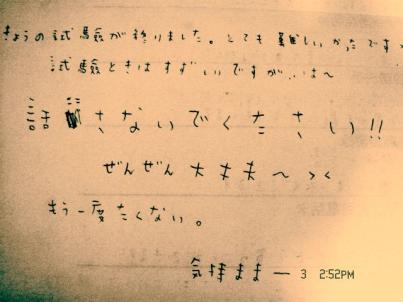 きょうの試験が終りました。とても難しいかったです
試験ときはすずしいですが、は〜
話 さないでください!!
ぜんぜん大丈夫〜 ><
もう一度たくない。
気持まま — 3 2:52PM